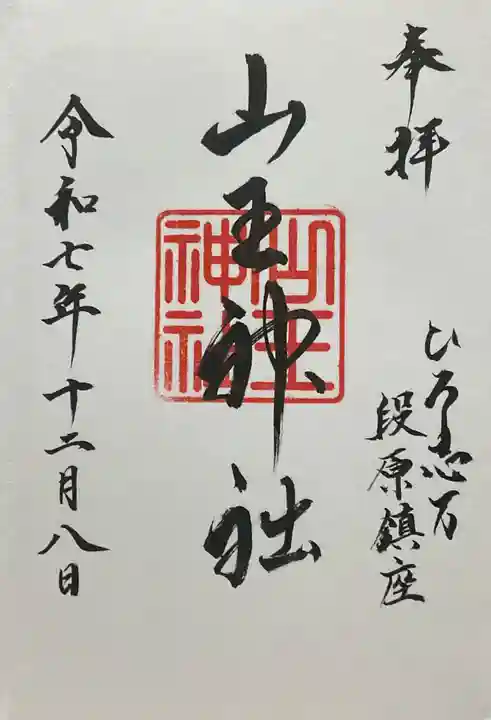 奉拝
ひろ志万
段原鎮座
山王神社
山王神社
令和七年十二月八日